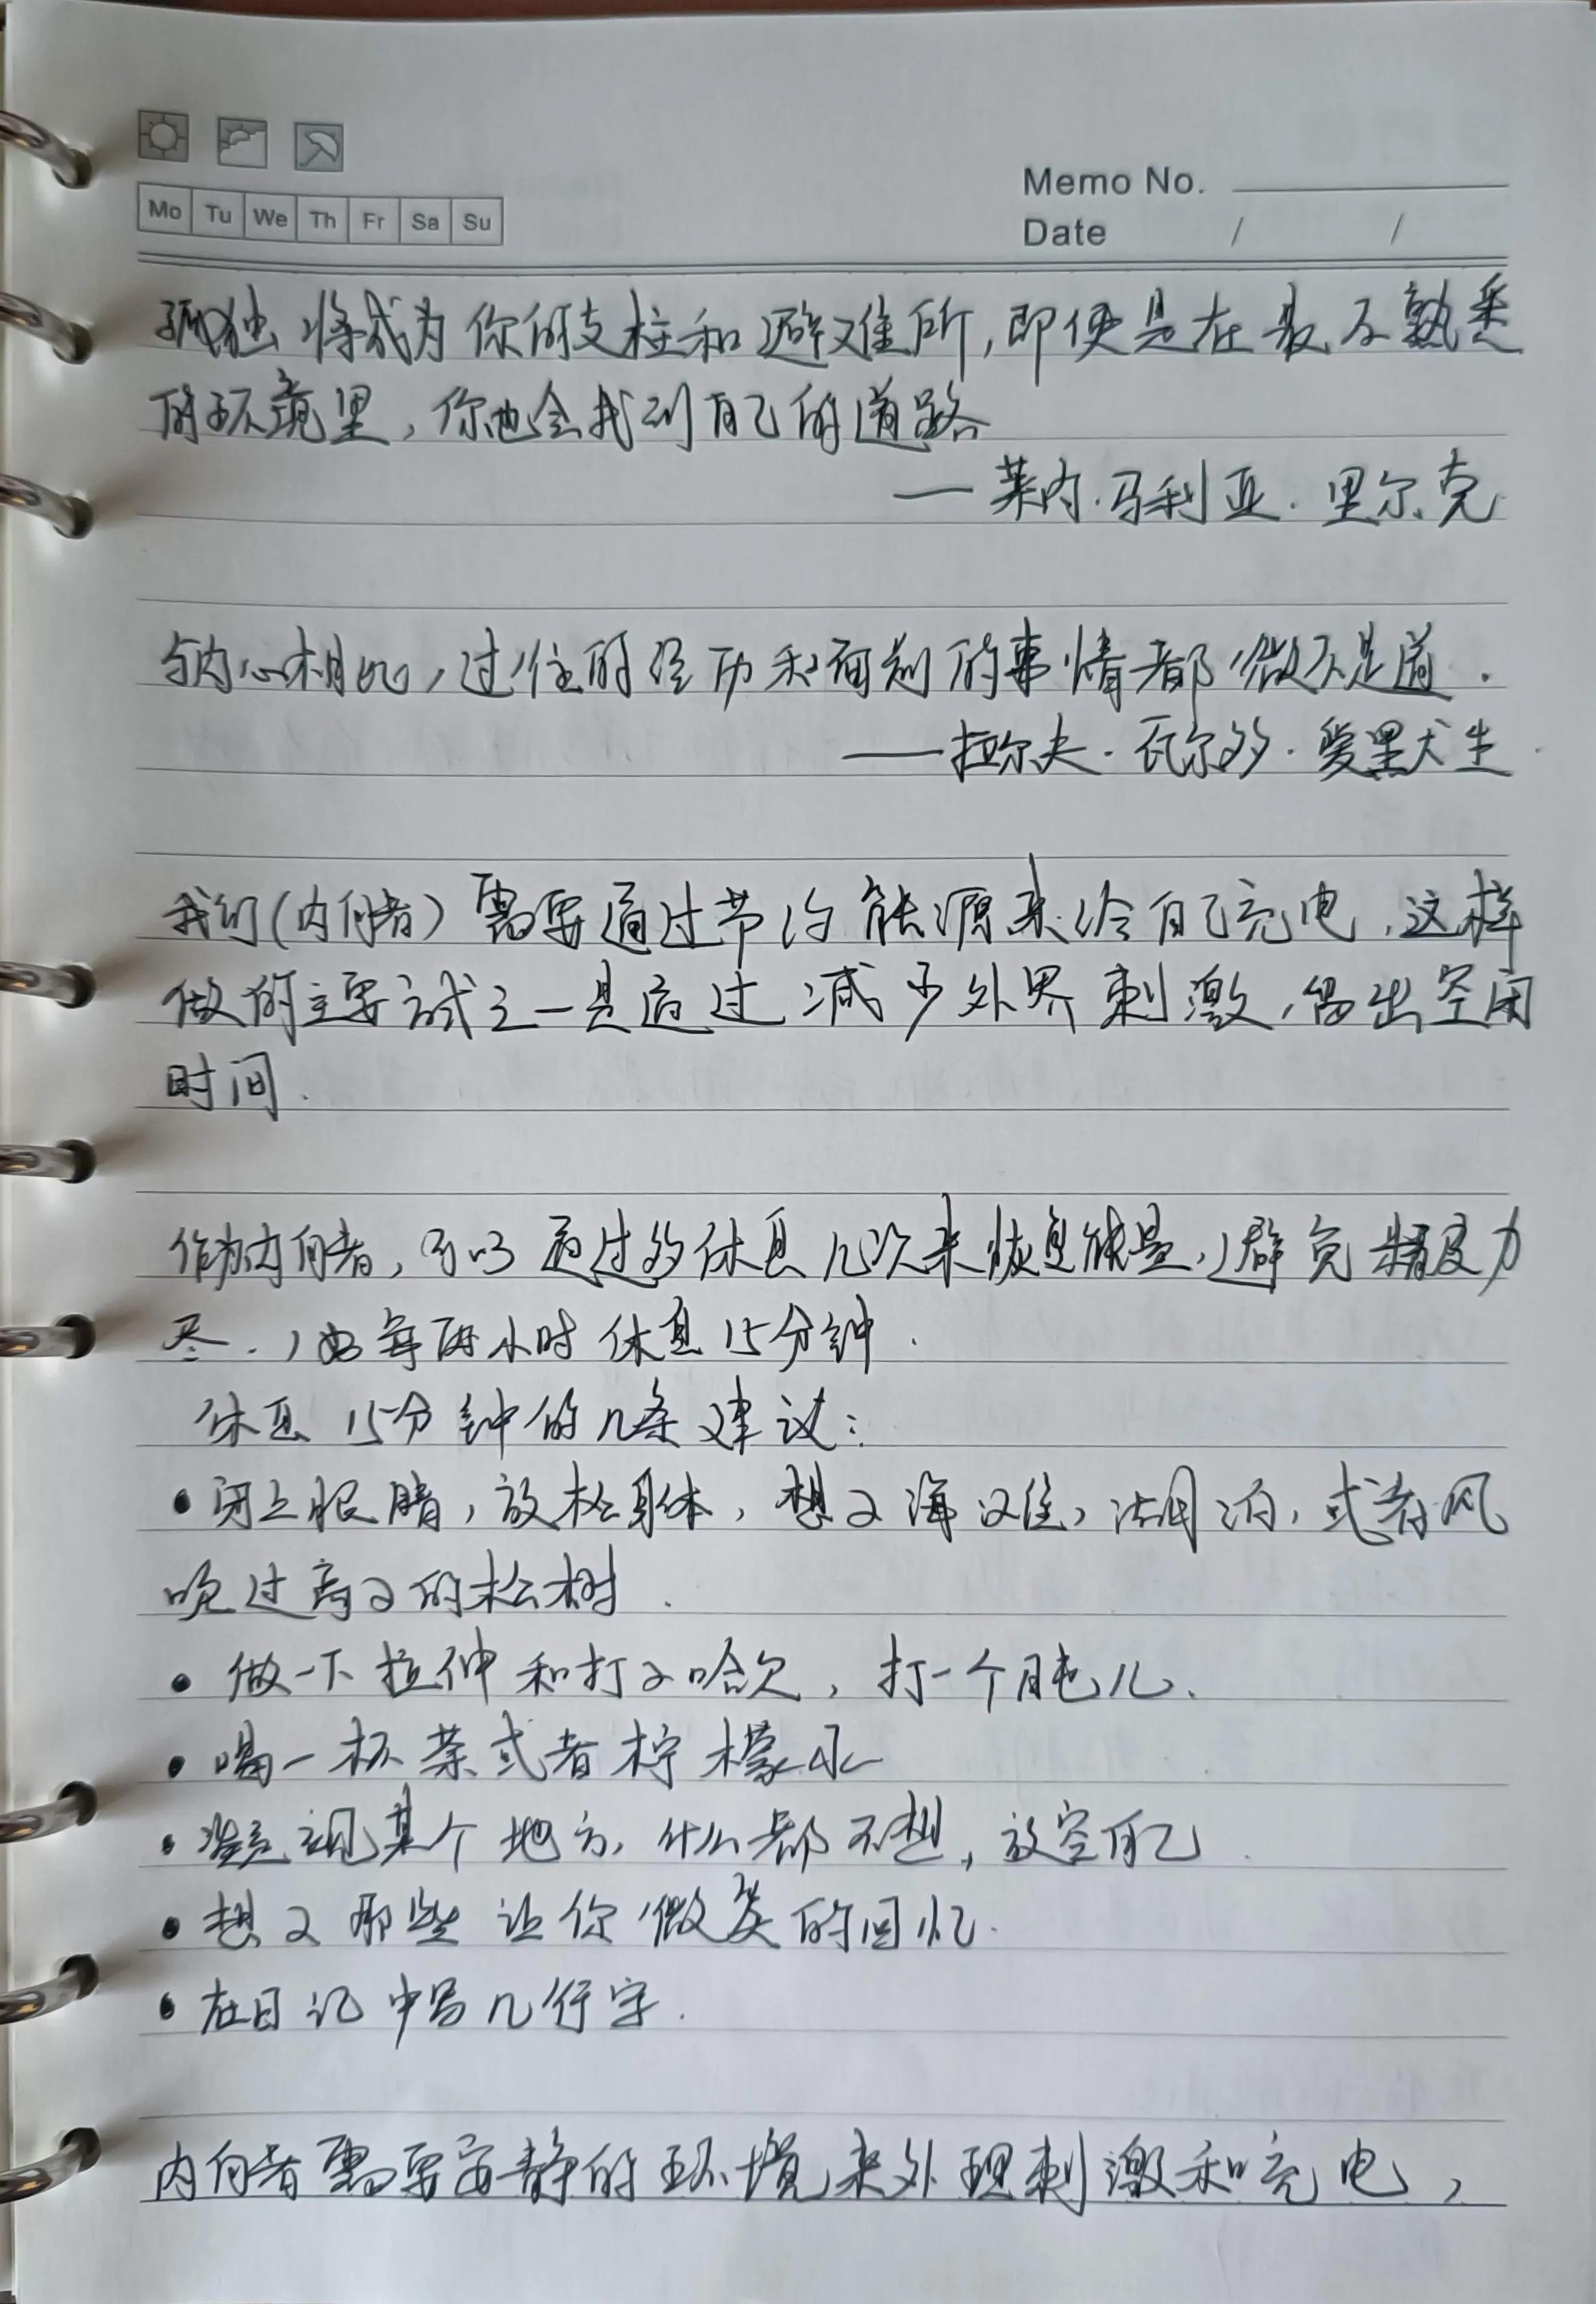 Mo Tu We Th Fr Sa Su
Memo No.
Date / /
孤独将成为你的支柱和避难所,即使是在最不熟悉
的环境里,你也会找到自己的道路
—莱内·马利亚·里尔克
与内心相比,过往的经历和面前的事情都微不足道.
——拉尔夫·瓦尔多·爱默生
我们(内向者)需要通过节约能源来给自己充电,这样
做的主要方式之一是通过减少外界刺激,留出空闲
时间.
作为内向者,可以通过多休息几次来恢复能量,避免精疲力
尽.,如每两小时休息15分钟.
休息15分钟的几条建议:
• 闭上眼睛,放松身体,想之海滩,湖泊,或者风
吹过高之的松树.
• 做一下拉伸和打之哈欠,打一个盹儿、
• 喝一杯茶或者柠檬水
• 凝视某个地方,什么都不想,放空自己.
• 想之那些让你微笑的回忆.
• 在日记中写几行字.
内向者需要安静的环境来处理刺激和充电,